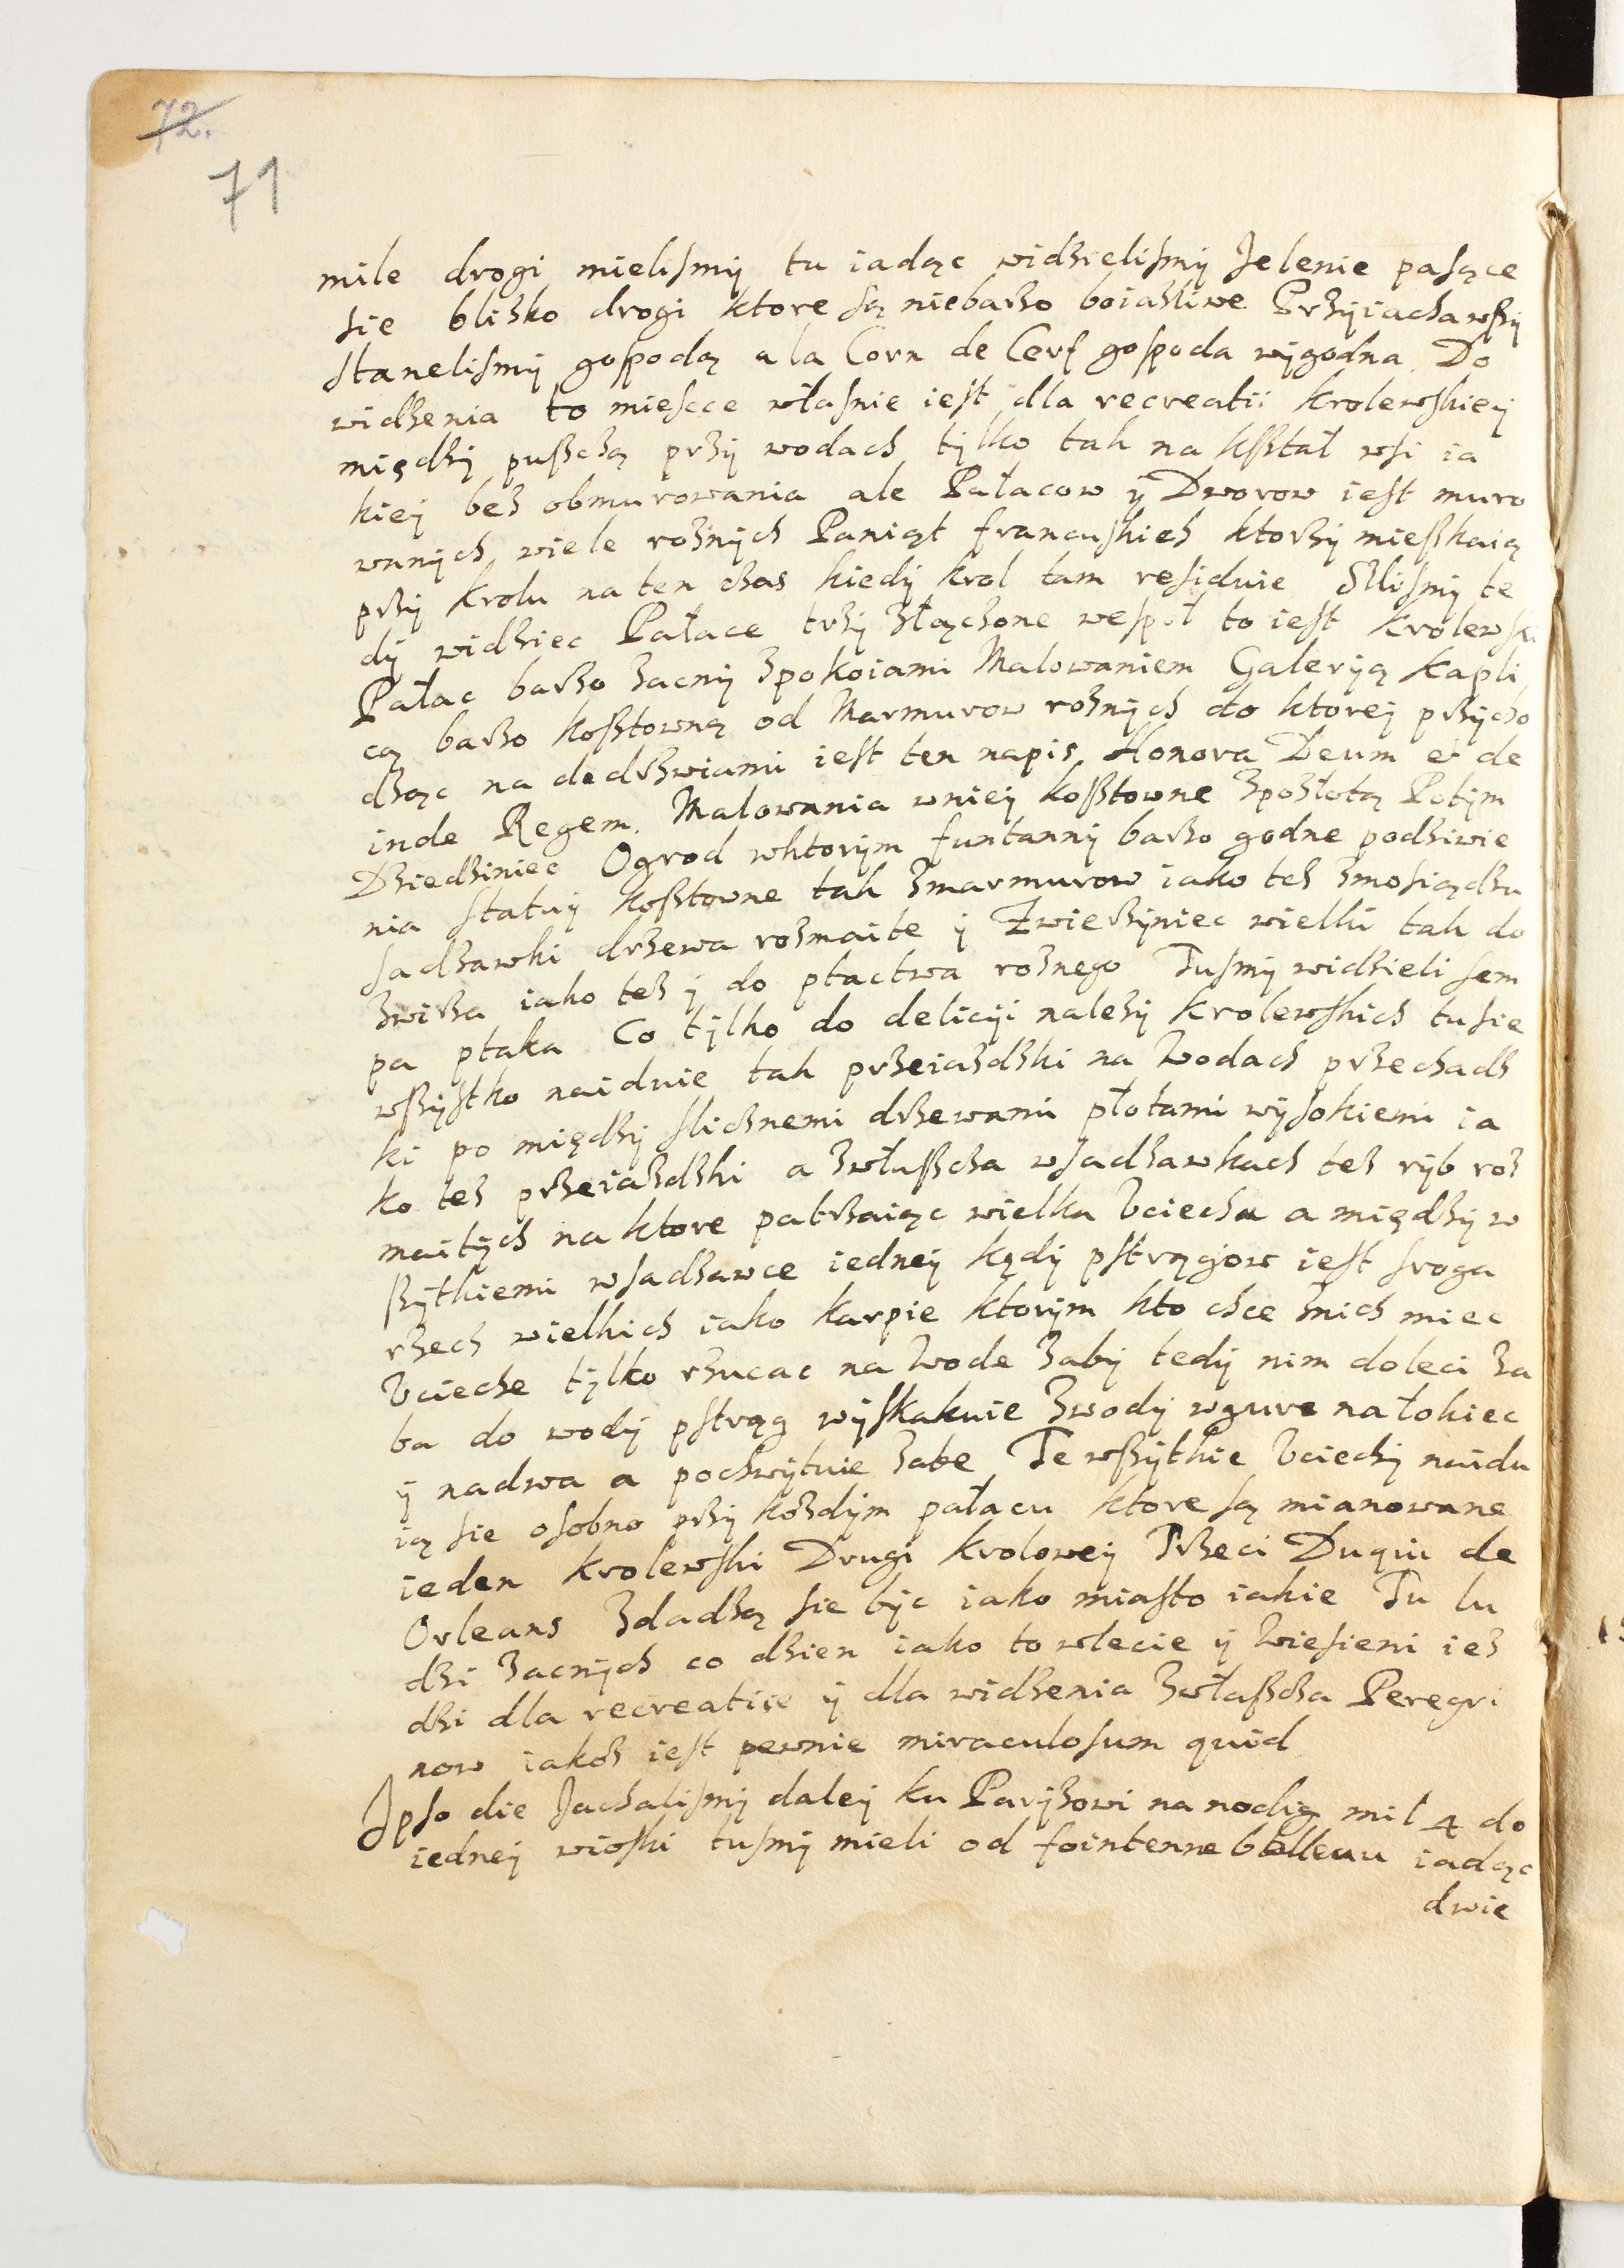 72.
71
mile drogi mielismÿ tu iadąc widzielismÿ Jelenie pasące
sie blisko drogi ktore są niebarzo boiazliwe Przÿiachawszÿ
stanelismÿ gospodą a la Corn de Cerf gospoda wÿgodna. Do
widzenia to miesce własnie iest dla recreatii krolewskieÿ
międzÿ puszczą przÿ wodach tÿlko tak na kształ wsi ia
kieÿ bez obmurowania ale Pałacow ÿ Dworow iest muro
wanÿch wiele roznÿch Paniąt francuskich ktorzÿ mieszkaią
przÿ krolu na ten czas kiedÿ krol tam residuie Szlismÿ te
dÿ widziec Pałace trzÿ złączone wespoł to iest krolewski
Pałac barzo zacnÿ zpokoiami Malowaniem Galerÿą kapli
cą barzo kosztowną od Marmurow roznÿch do ktoreÿ przÿcho
dząc na dedrzwiami iest ten napis. Honora Deum et de
inde Regem. Malowania wnieÿ kosztowne zpozłotą Potÿm
Dziedziniec Ogrod wktorÿm funtannÿ barzo godne podziwie
nia statuÿ kosztowne tak zmarmurow iako tez zmosiądzu
sadzawki drzewa rozmaite ÿ Zwierzÿniec wielki tak do
zwirza iako tez ÿ do ptactwa roznego Tusmÿ widzieli sem
pa ptaka Co tÿlko do delicÿi nalezÿ krolewskich tu sie
wszÿstko naiduie tak przeiazdzki na wodach przechadz
ki po międzÿ slicznemi drzewami płotami wÿsokiemi ia
ko tez przeiazdzki a zwłaszcza wsadzawkach tez rÿb roz
maitÿch na ktore patrzaiąc wielka Vciecha a międzÿ w
szÿtkiemi wsadzawce iedneÿ kędÿ pstrągow iest sroga
rzecz wielkich iako karpie ktorÿm kto chce znich miec
Vcieche tÿlko rzucac na wode zabÿ tedÿ nim doleci za
ba do wodÿ pstrąg wÿskakuie zwodÿ wgure na łokiec
ÿ nadwa a pochwÿtuie zabe Te wszÿtkie Vciechÿ naidu
ią sie osobno przÿ kozdÿm pałacu ktore są mianowane
ieden krolewski Drugi kroloweÿ Trzeci Duqiu de
Orleans zdadzą sie bÿc iako miasto iakie Tu lu
dzi zacnÿch co dzien iako to wlecie ÿ wiesieni iez
dzi dla recreatiie ÿ dla widzenia zwłaszcza Peregri
now iakoz iest pewnie miraculosum quid
Jpso die Jachalismÿ daleÿ ku Parÿzowi na noclig mil 4 do
iedneÿ wioski tusmÿ mieli od fointennebelleuu iadąc
dwie